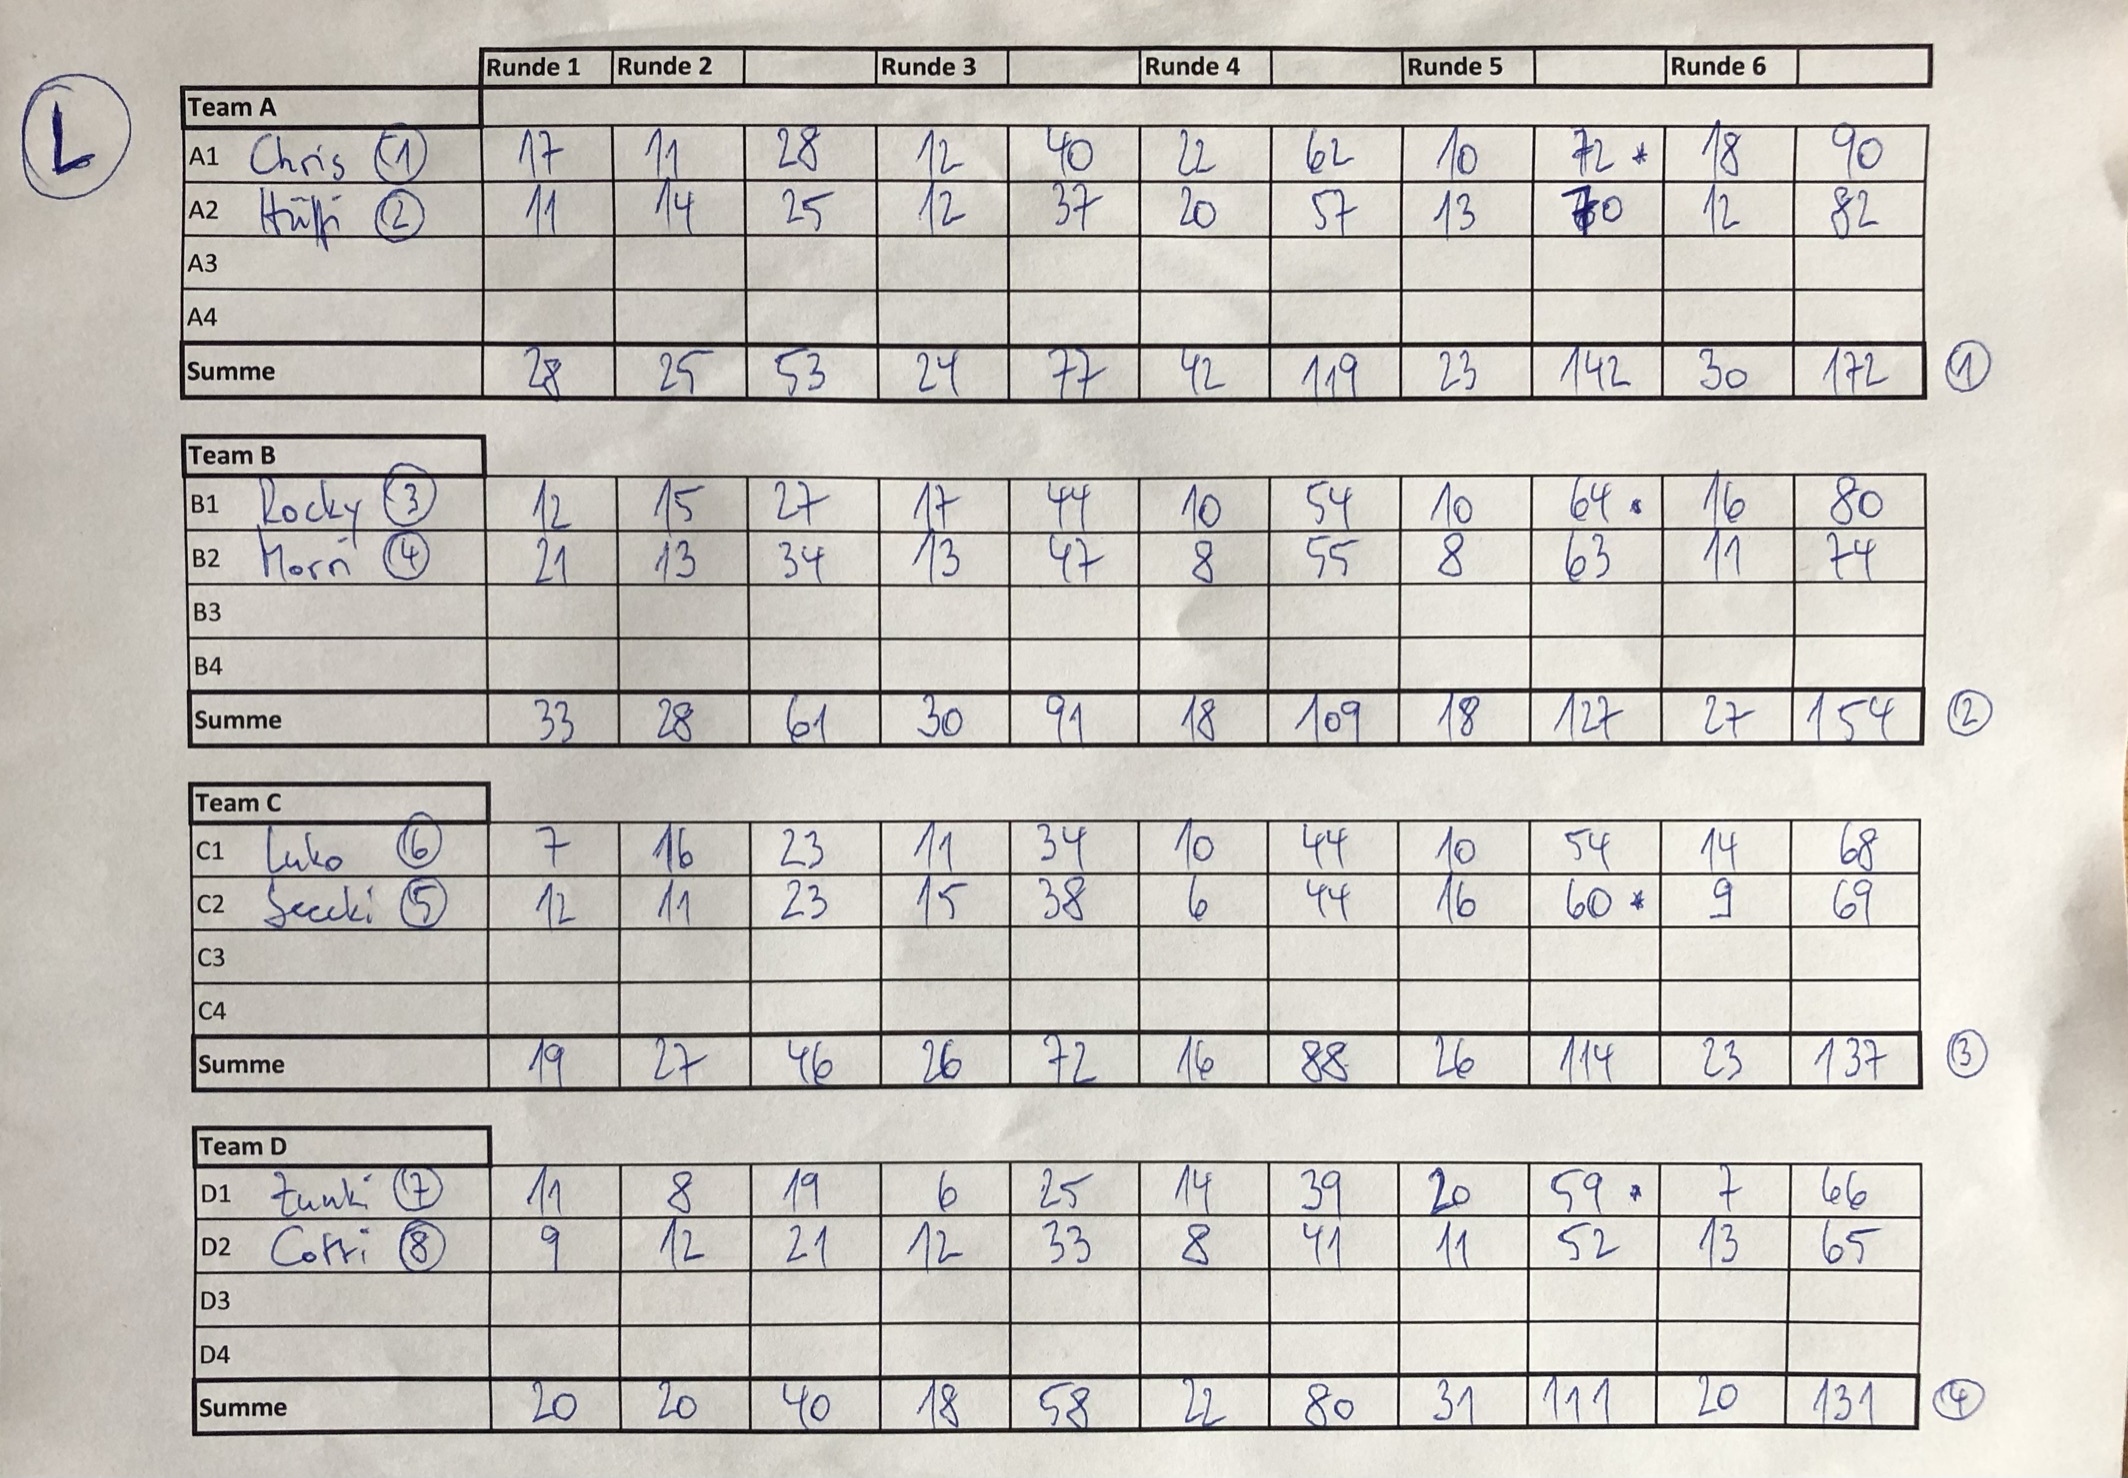 Runde 1 Runde 2 Runde 3 Runde 4 Runde 5 Runde 6
L
Team A
A1 Chris 1 17 11 28 12 40 22 62 10 72 * 18 90
A2 2 11 14 25 12 37 20 57 13 70 12 82
A3
A4
Summe 28 25 53 24 77 42 119 23 142 30 172 1
Team B
B1 Rocky 3 12 15 27 17 44 10 54 10 64 * 16 80
B2 4 21 13 34 13 47 8 55 8 63 11 74
B3
B4
Summe 33 28 61 30 91 18 109 18 127 27 154 2
Team C
C1 Luko 6 7 16 23 11 34 10 44 10 54 14 68
C2 5 12 11 23 15 38 6 44 16 60 * 9 69
C3
C4
Summe 19 27 46 26 72 16 88 26 114 23 137 3
Team D
D1 7 11 8 19 6 25 14 39 20 59 * 7 66
D2 8 9 12 21 12 33 8 41 11 52 13 65
D3
D4
Summe 20 20 40 18 58 22 80 31 111 20 131 4